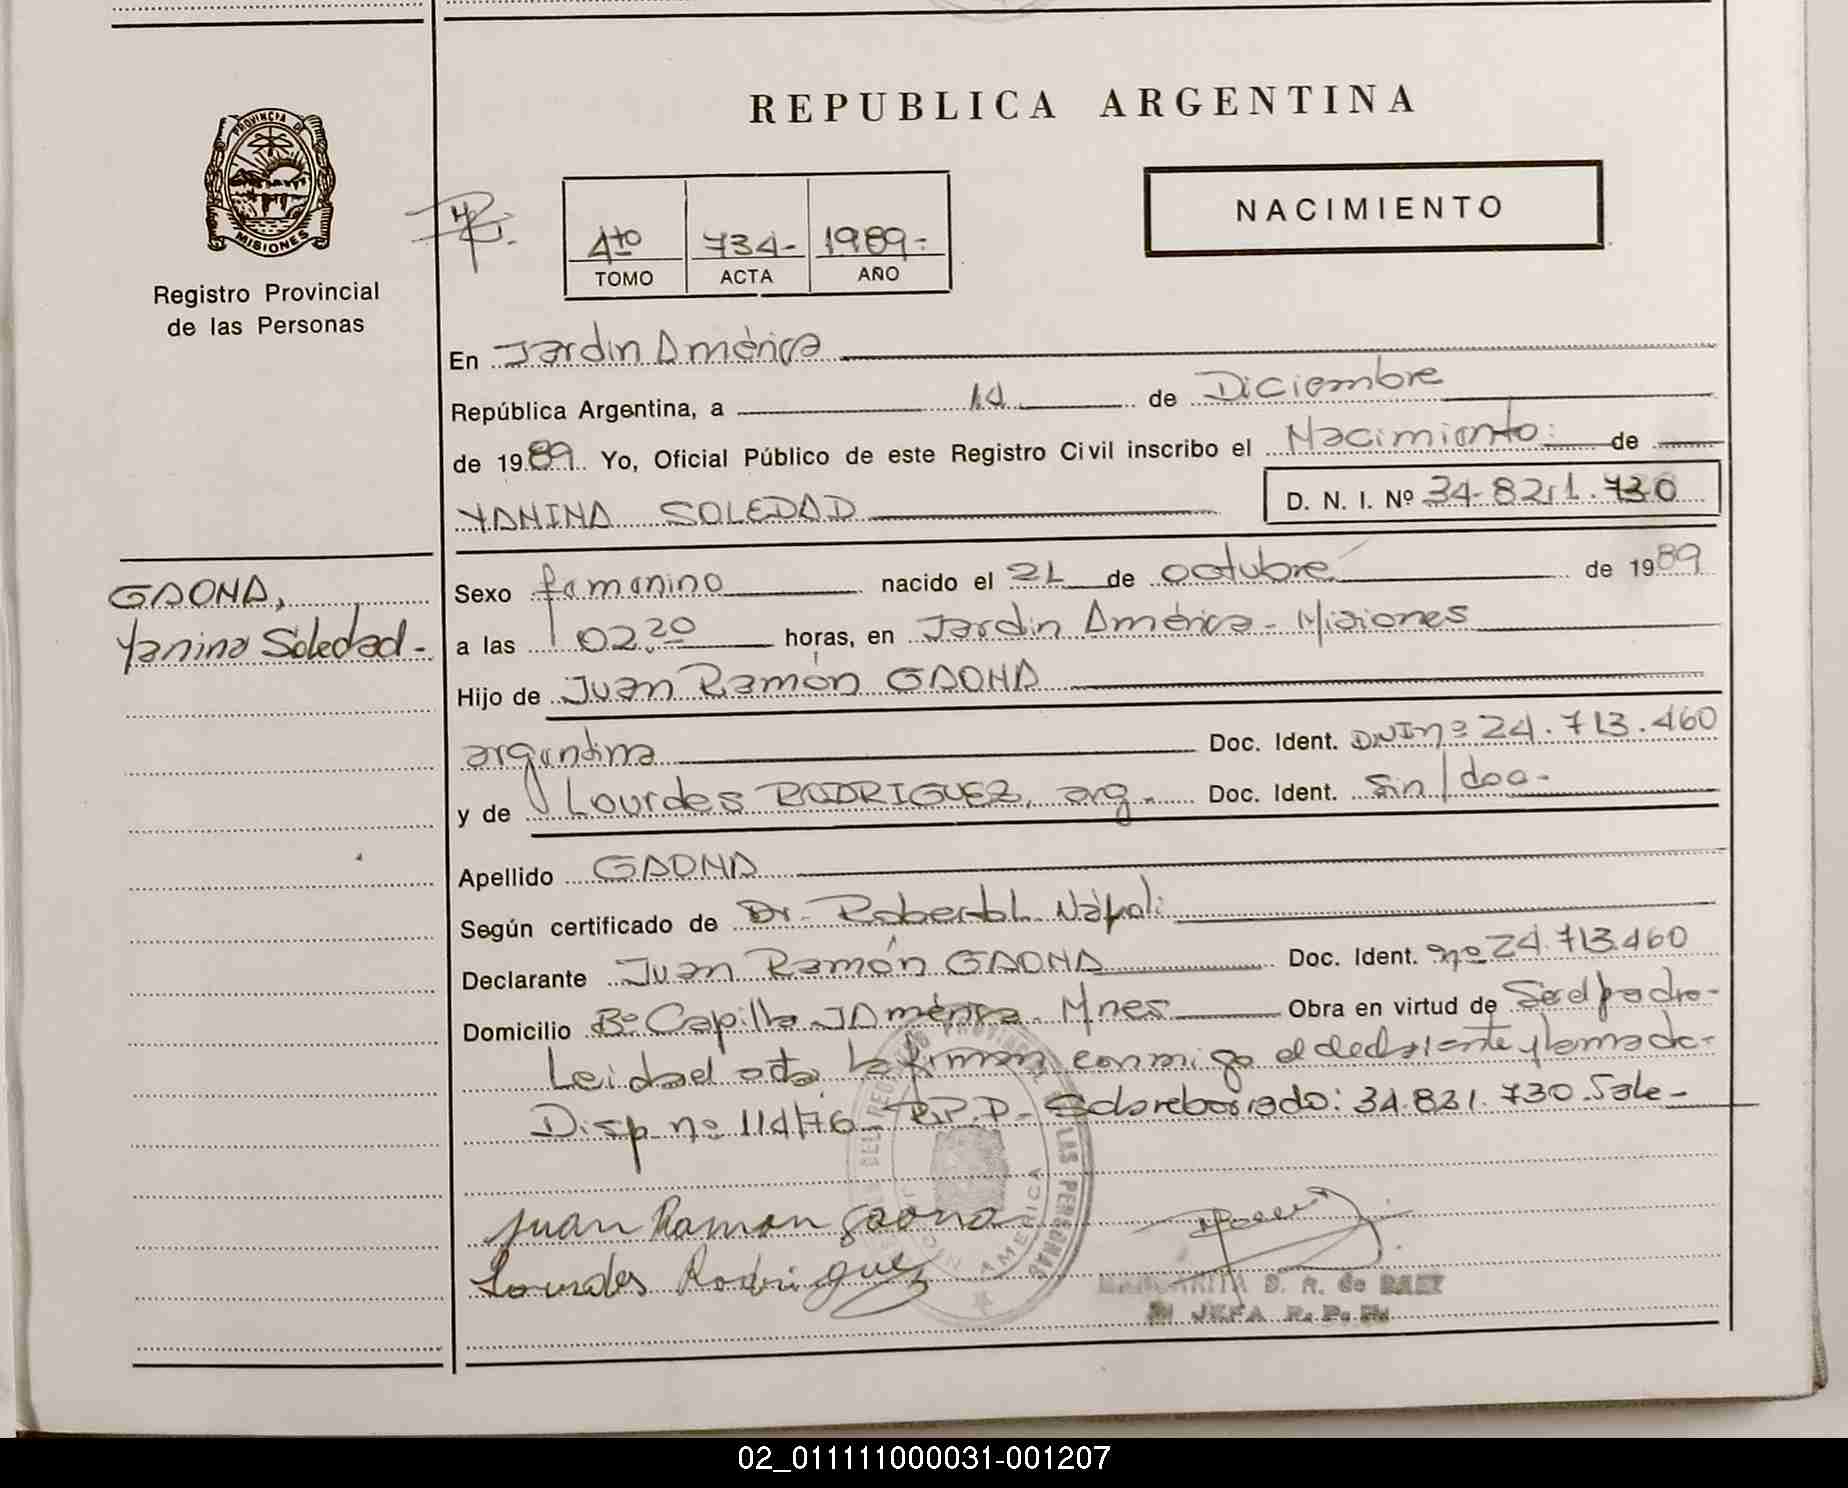 REPUBLICA ARGENTINA
PROVINCIA DE
MISIONES
Registro Provincial
de las Personas
4to 734- 1989-
TOMO ACTA AÑO
NACIMIENTO
En Jardin América
República Argentina, a 14 de Diciembre
de 1989 Yo, Oficial Público de este Registro Civil inscribo el Nacimiento: de
YANINA SOLEDAD D. N. I. Nº 34.821.730
GAONA,
Yanina Soledad-
Sexo femenino nacido el 21 de octubre de 1989
a las 02.20 horas, en Jardin América - Misiones
Hijo de Juan Ramón GAONA
argentina Doc. Ident. DNI nº 24.713.460
y de Lourdes RODRIGUEZ, arg. Doc. Ident. Sin/doc-
Apellido GAONA
Según certificado de Dr. L. Nápoli
Declarante Juan Ramón GAONA Doc. Ident. nº 24.713.460
Domicilio Bº Capilla J América - Mnes Obra en virtud de Ser el padre-
Leida el acta la firman conmigo el declarante y la madre-
Disp nº 114/76 R.P.P- Sobreborrado: 34.821.730. Vale-
Juan Ramon Gaona
Lourdes Rodriguez
PROVINCIAL DE LAS PERSONAS
AMERICA
D. R. de BAEZ
JEFA R. P. P.
02_011111000031-001207